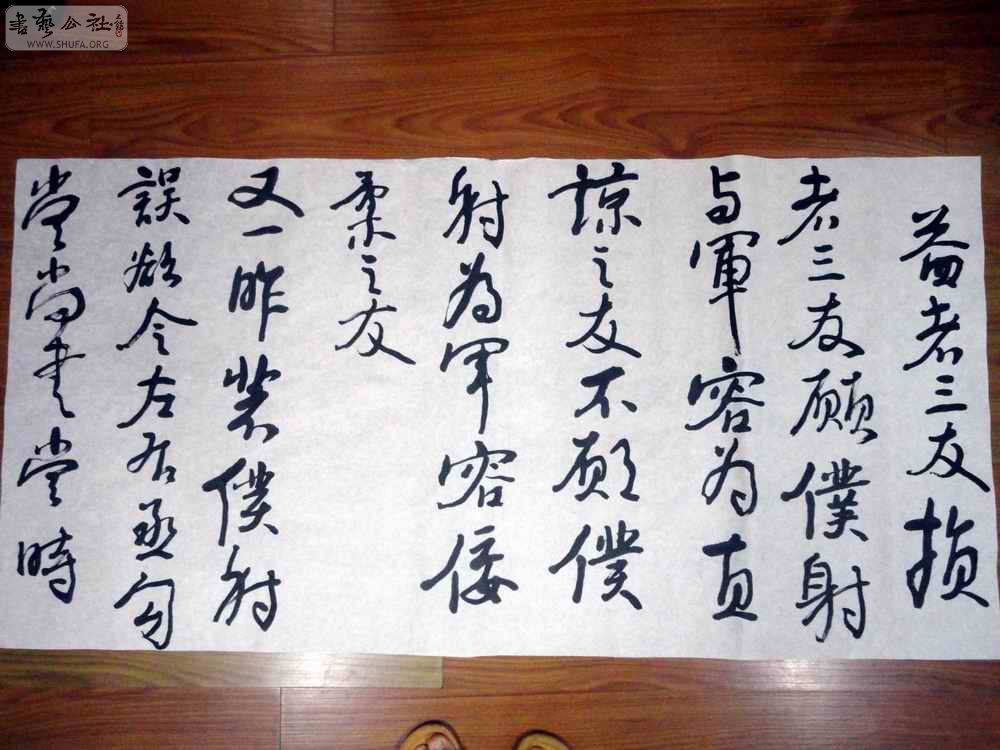 益者三友损
者三友願僕射
与軍容为直
諒之友不願僕
射为軍容佞
柔之友
又一昨裴僕射
誤欲令左右丞勾
當尚書當時
書藝公社
WWW.SHUFA.ORG